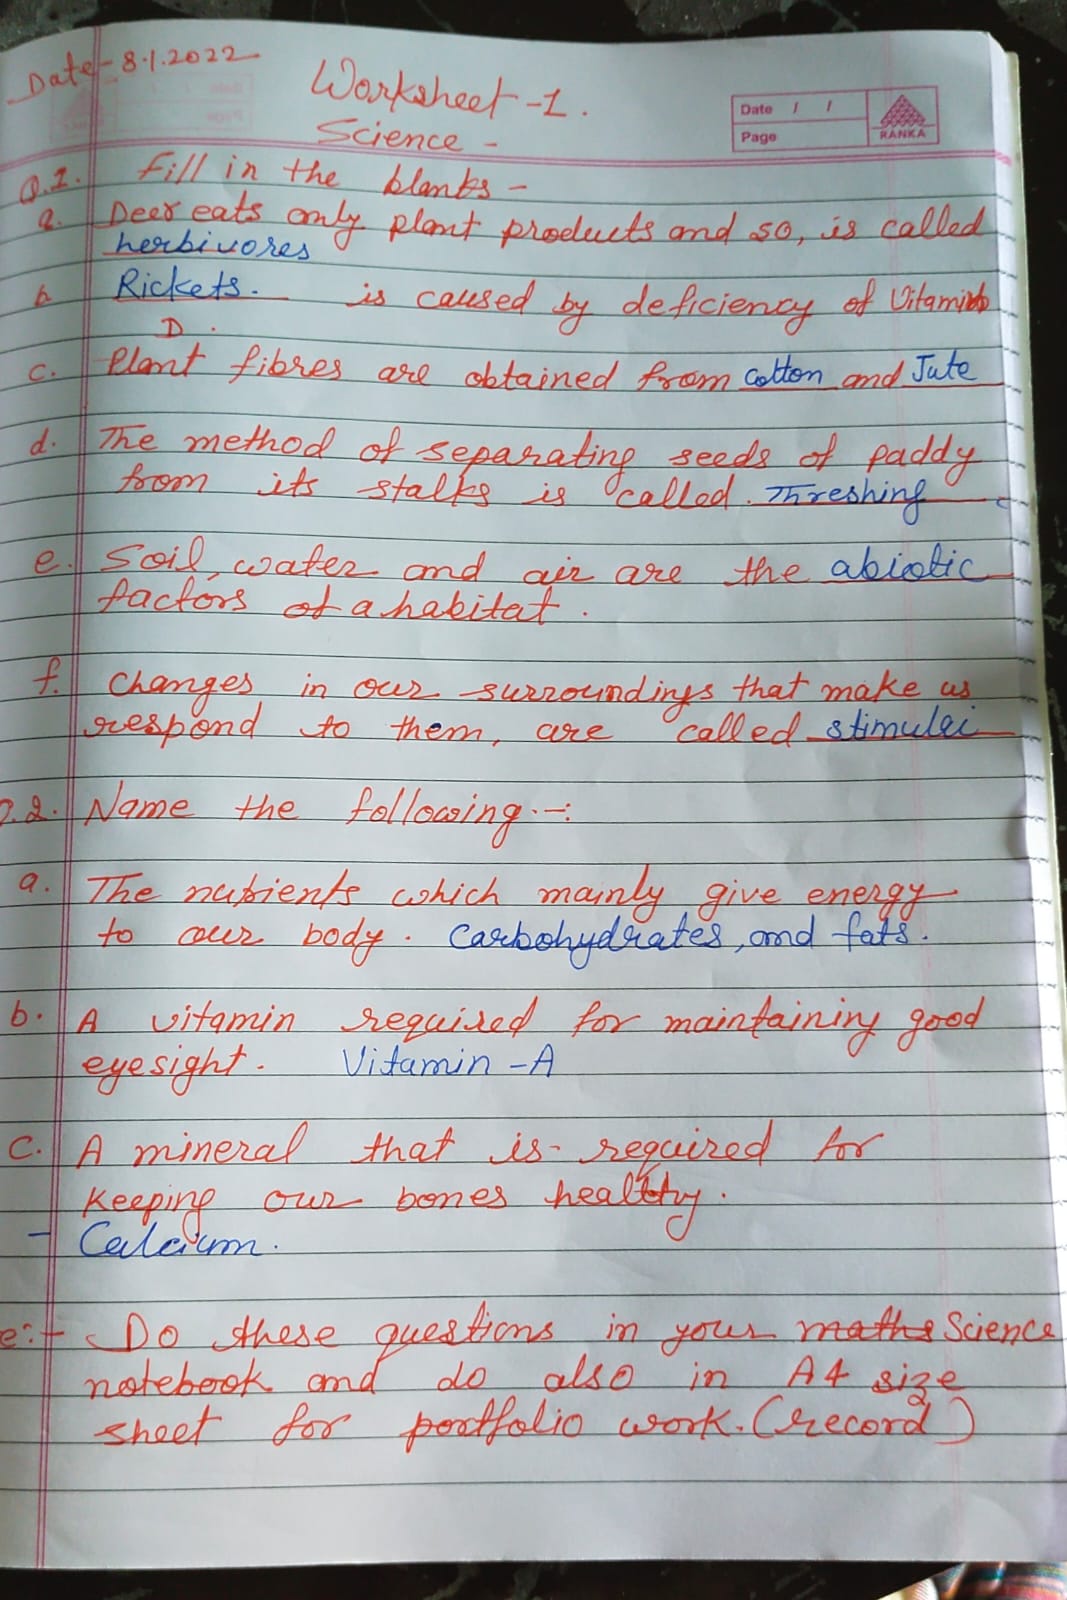 Date - 8.1.2022
Worksheet - 1.
Science -
Date / /
Page
RANKA
Q.1. Fill in the blanks -
a. Deer eats only plant products and so, is called
herbivores
b Rickets. is caused by deficiency of Vitamin
D.
c. Plant fibres are obtained from cotton and Jute
d. The method of separating seeds of paddy
from its stalks is called. Threshing
e. Soil, water and air are the abiotic
factors of a habitat.
f. Changes in our surroundings that make us
respond to them, are called stimulei
Q.2. Name the following.-:
a. The nutrients which mainly give energy
to our body. Carbohydrates, and fats.
b. A vitamin required for maintaining good
eyesight. Vitamin - A
C. A mineral that is required for
keeping our bones healthy.
- Calcium.
e:- Do these questions in your maths Science
notebook and do also in A4 size
sheet for portfolio work. (record)